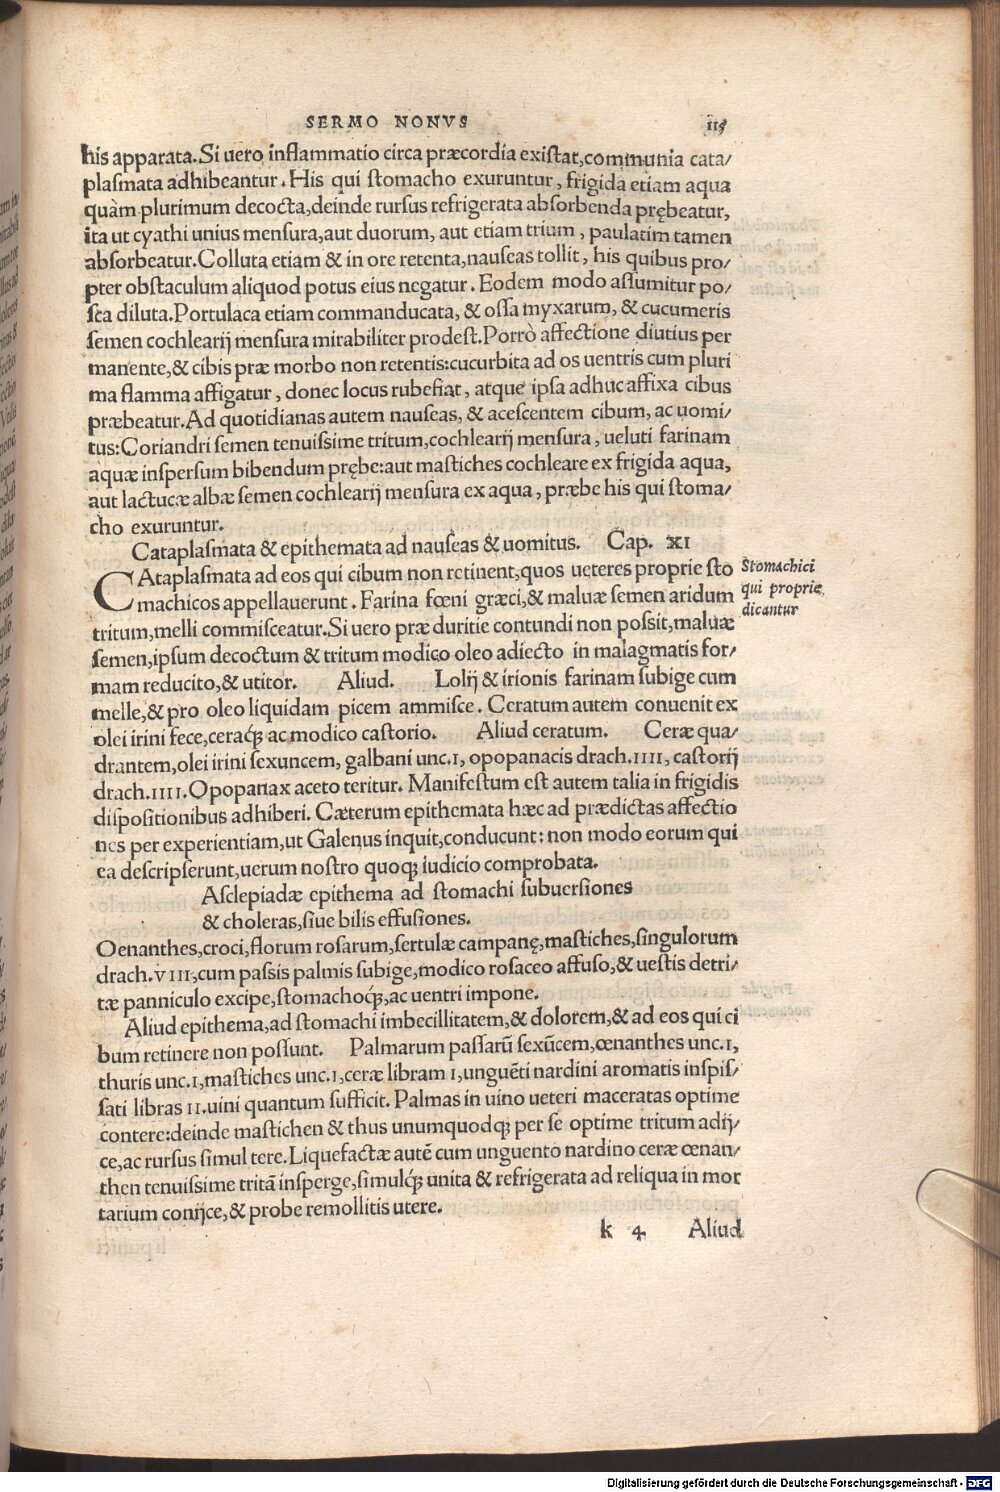 SERMO NONVS 115
his apparata. Si uero inflammatio circa præcordia existat, communia cata/
plasmata adhibeantur. His qui stomacho exuruntur, frigida etiam aqua
quàm plurimum decocta, deinde rursus refrigerata absorbenda prębeatur,
ita ut cyathi unius mensura, aut duorum, aut etiam trium, paulatim tamen
absorbeatur. Colluta etiam & in ore retenta, nauseas tollit, his quibus pro/
pter obstaculum aliquod potus eius negatur. Eodem modo assumitur po/
sca diluta. Portulaca etiam commanducata, & ossa myxarum, & cucumeris
semen cochlearij mensura mirabiliter prodest. Porrò affectione diutius per
manente, & cibis præ morbo non retentis: cucurbita ad os uentris cum pluri
ma flamma affigatur, donec locus rubefiat, atque ipsa adhuc affixa cibus
præbeatur. Ad quotidianas autem nauseas, & acescentem cibum, ac uomi/
tus: Coriandri semen tenuissime tritum, cochlearij mensura, ueluti farinam
aquæ inspersum bibendum prębe: aut mastiches cochleare ex frigida aqua,
aut lactucæ albæ semen cochlearij mensura ex aqua, præbe his qui stoma/
cho exuruntur.
Cataplasmata & epithemata ad nauseas & uomitus. Cap. XI
CAtaplasmata ad eos qui cibum non retinent, quos ueteres proprie sto
machicos appellauerunt. Farina fœni græci, & maluæ semen aridum
tritum, melli commisceatur. Si uero præ duritie contundi non possit, maluæ
semen, ipsum decoctum & tritum modico oleo adiecto in malagmatis for/
mam reducito, & utitor. Aliud. Lolij & irionis farinam subige cum
melle, & pro oleo liquidam picem ammisce. Ceratum autem conuenit ex
olei irini fece, ceraq́ꝫ ac modico castorio. Aliud ceratum. Ceræ qua/
drantem, olei irini sexuncem, galbani unc. I, opopanacis drach. IIII, castorij
drach. IIII. Opopanax aceto teritur. Manifestum est autem talia in frigidis
dispositionibus adhiberi. Cæterum epithemata hæc ad prædictas affectio
nes per experientiam, ut Galenus inquit, conducunt: non modo eorum qui
ea descripserunt, uerum nostro quoqꝫ iudicio comprobata.
Asclepiadæ epithema ad stomachi subuersiones
& choleras, siue bilis effusiones.
Oenanthes, croci, florum rosarum, sertulæ campanę, mastiches, singulorum
drach. VIII, cum passis palmis subige, modico rosaceo affuso, & uestis detri/
tæ panniculo excipe, stomachoq́ꝫ, ac uentri impone.
Aliud epithema, ad stomachi imbecillitatem, & dolorem, & ad eos qui ci
bum retinere non possunt. Palmarum passarũ sexũcem, œnanthes unc. I,
thuris unc. I, mastiches unc. I, ceræ libram I, unguẽti nardini aromatis inspis/
sati libras II. uini quantum sufficit. Palmas in uino ueteri maceratas optime
contere: deinde mastichen & thus unumquodqꝫ per se optime tritum adij/
ce, ac rursus simul tere. Liquefactæ autẽ cum unguento nardino ceræ œnan/
then tenuissime tritã insperge, simulq́ꝫ unita & refrigerata ad reliqua in mor
tarium conijce, & probe remollitis utere.
k 4 Aliud
Stomachici
qui proprie
dicantur
Digitalisierung gefördert durch die Deutsche Forschungsgemeinschaft - DFG